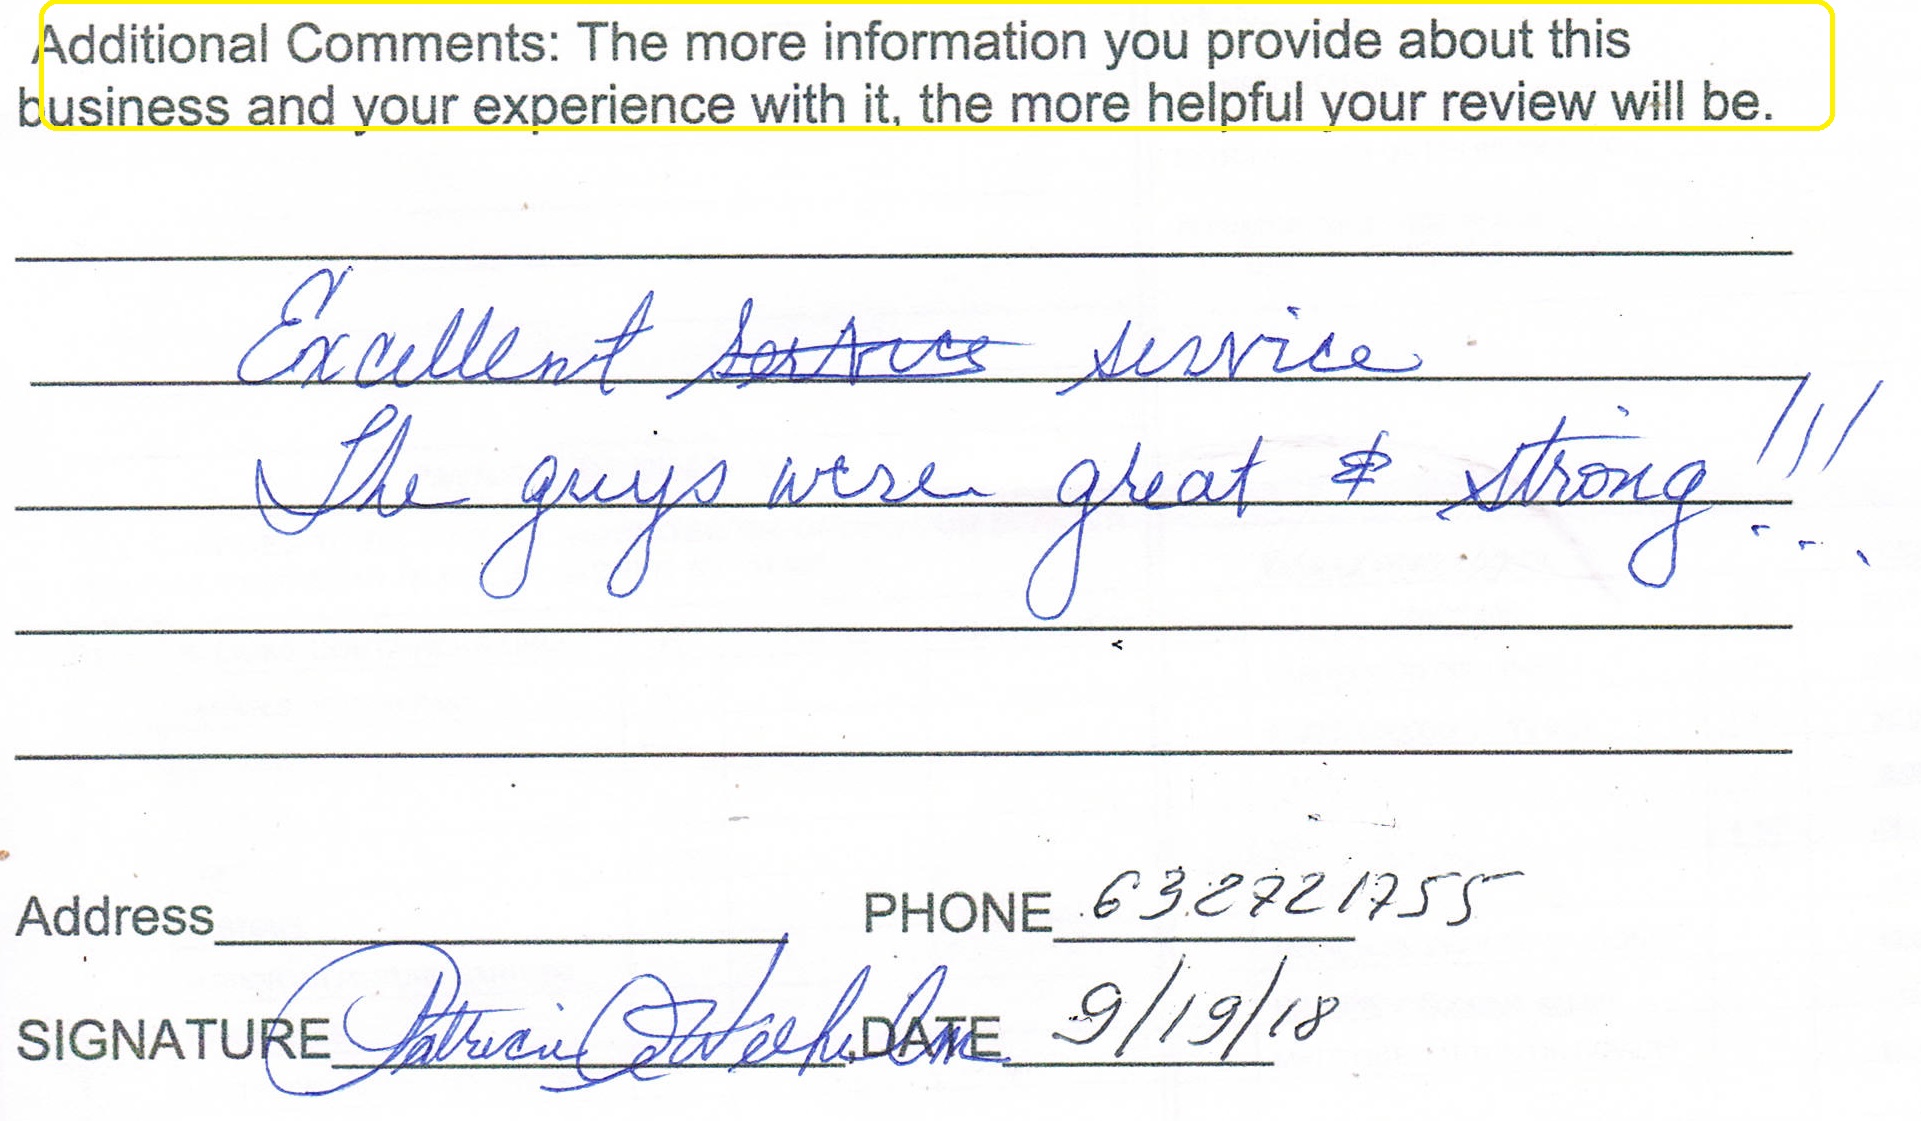 Additional Comments: The more information you provide about this
business and your experience with it, the more helpful your review will be.
Excellent service
The guys were great & strong!!!
Address PHONE 632721755
SIGNATURE Patricia DATE 9/19/18